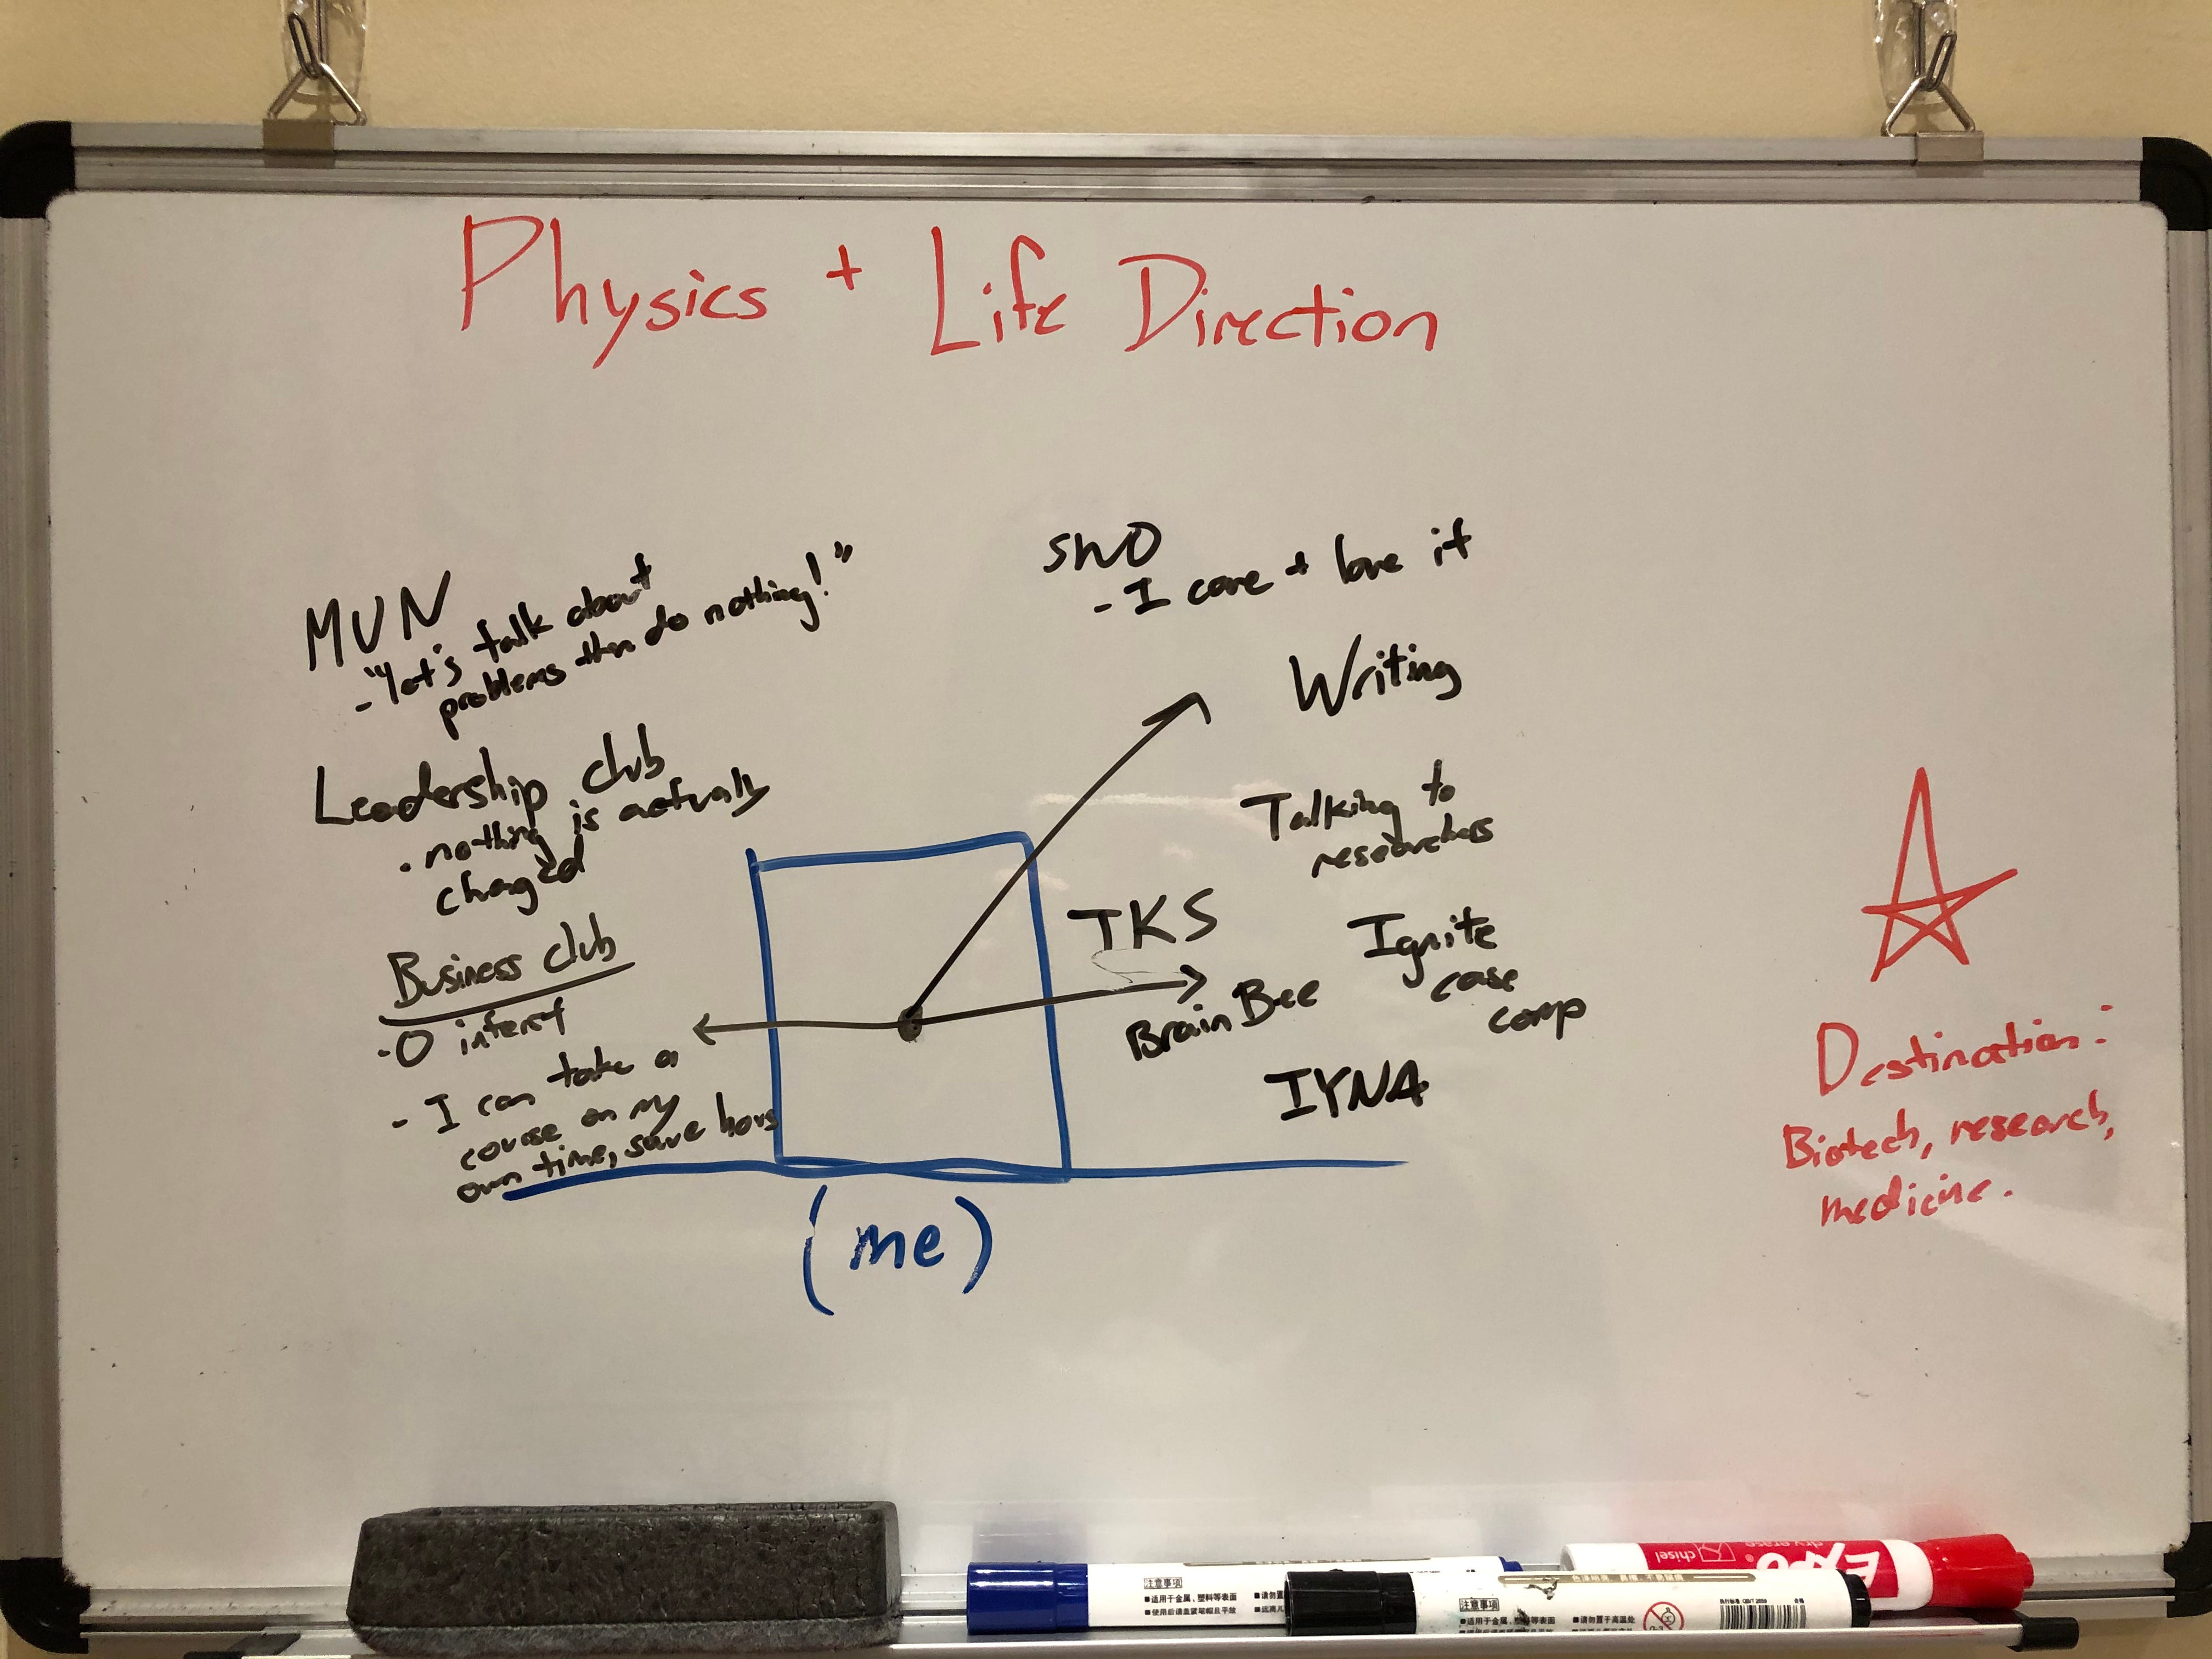 Physics + Life Direction
MUN
- "let's talk about
problems then do nothing!"
Leadership club
. nothing is actually
changed
Business club
- 0 interst
- I can take a
course on my
own time, save hours
SNO
- I care + love it
Writing
Talking to
researchers
TKS
Ignite
case
comp
Brain Bee
IYNA
(me)
Destination:
Biotech, research,
medicine.
注意事項
■适用于金属,塑料等表面
注意事項
■适用于金属,塑料等表面
■请勿置于高温处
EXPO
dry erase
chisel